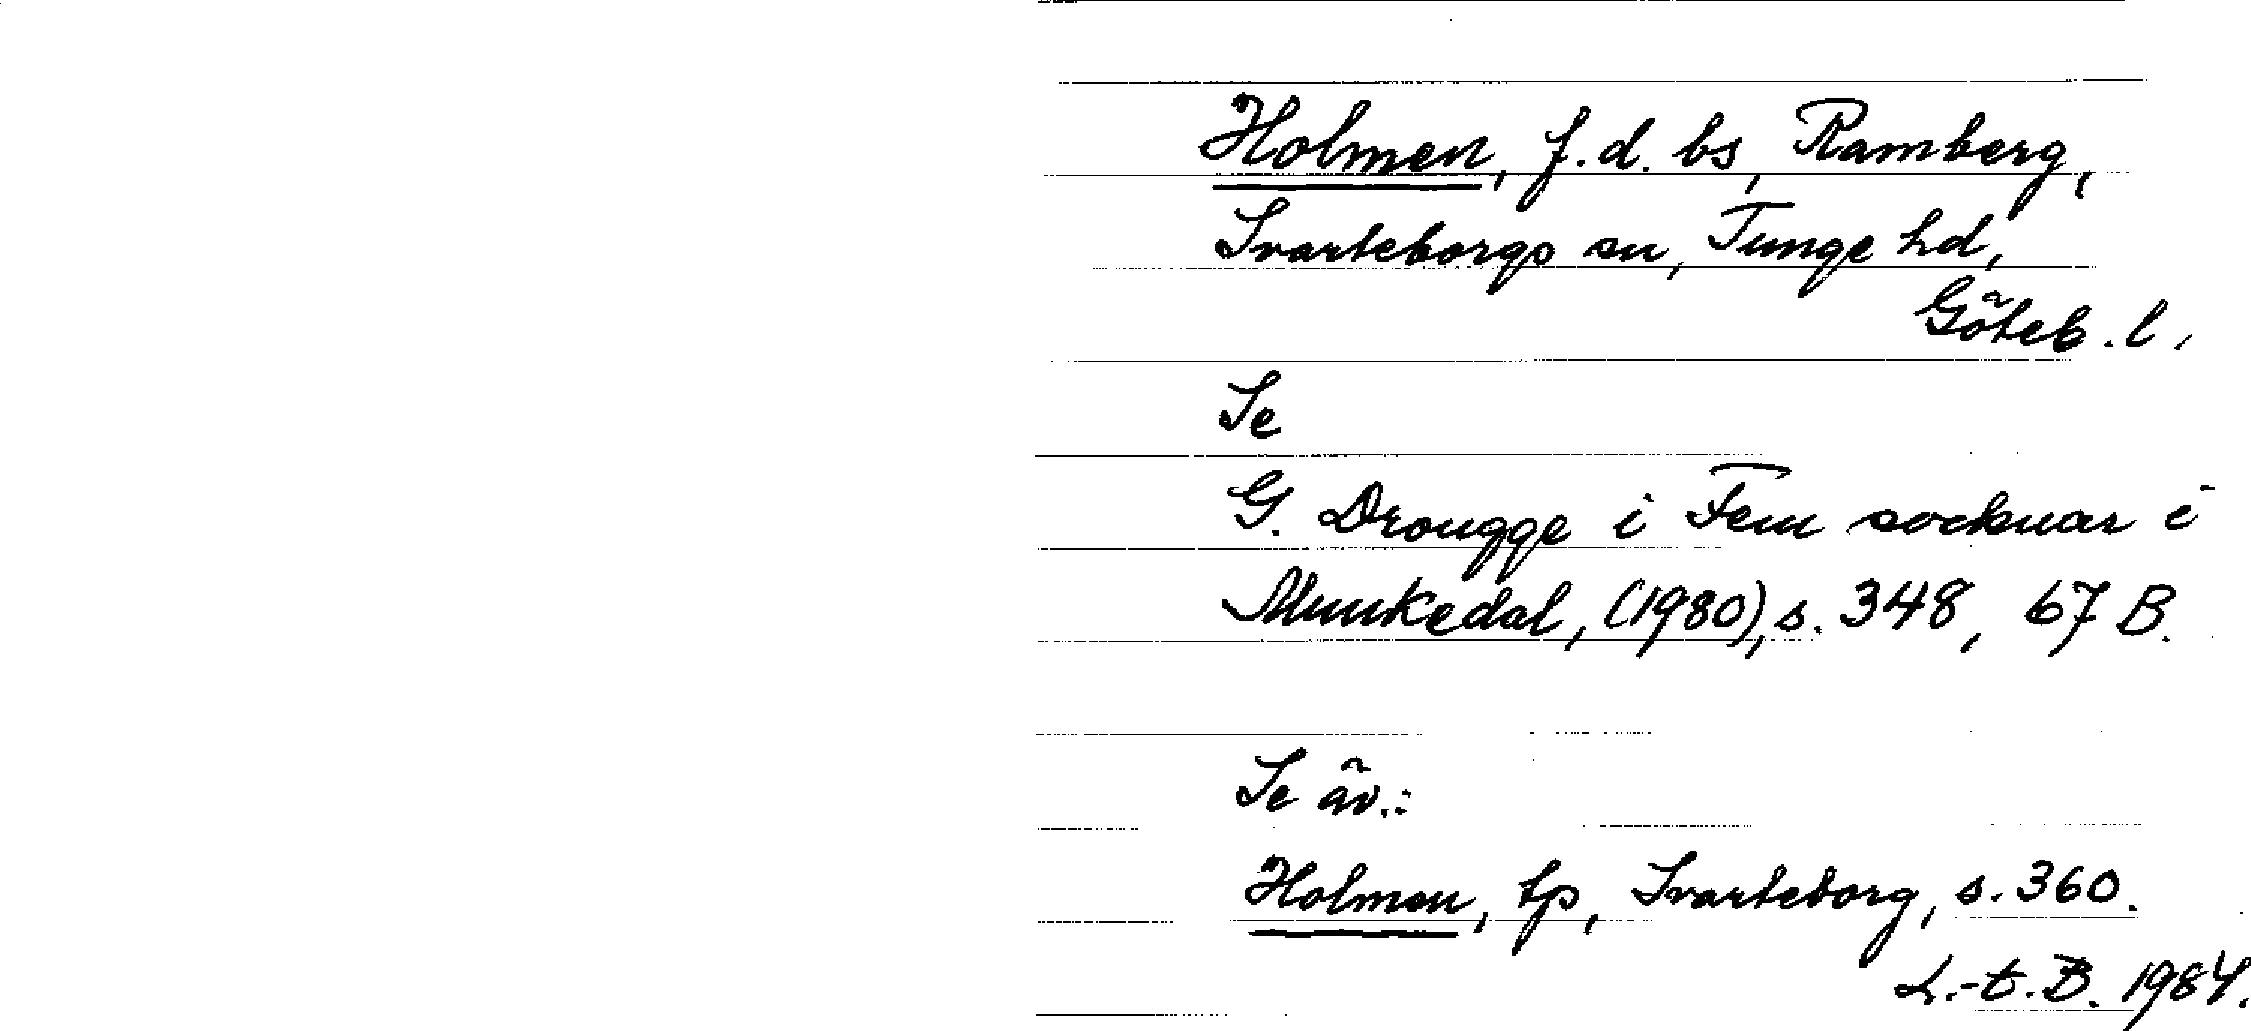 Holmen, f.d. bs, Ramberg,
Svarteborgs sn, Tunge hd,
Göteb. l.
Se
G. Drougge i Fem socknar i
Munkedal, (1980), s. 348, 67 B.
Se äv.:
Holmen, tp, Svarteborg, s. 360.
L.-t. B. 1984.